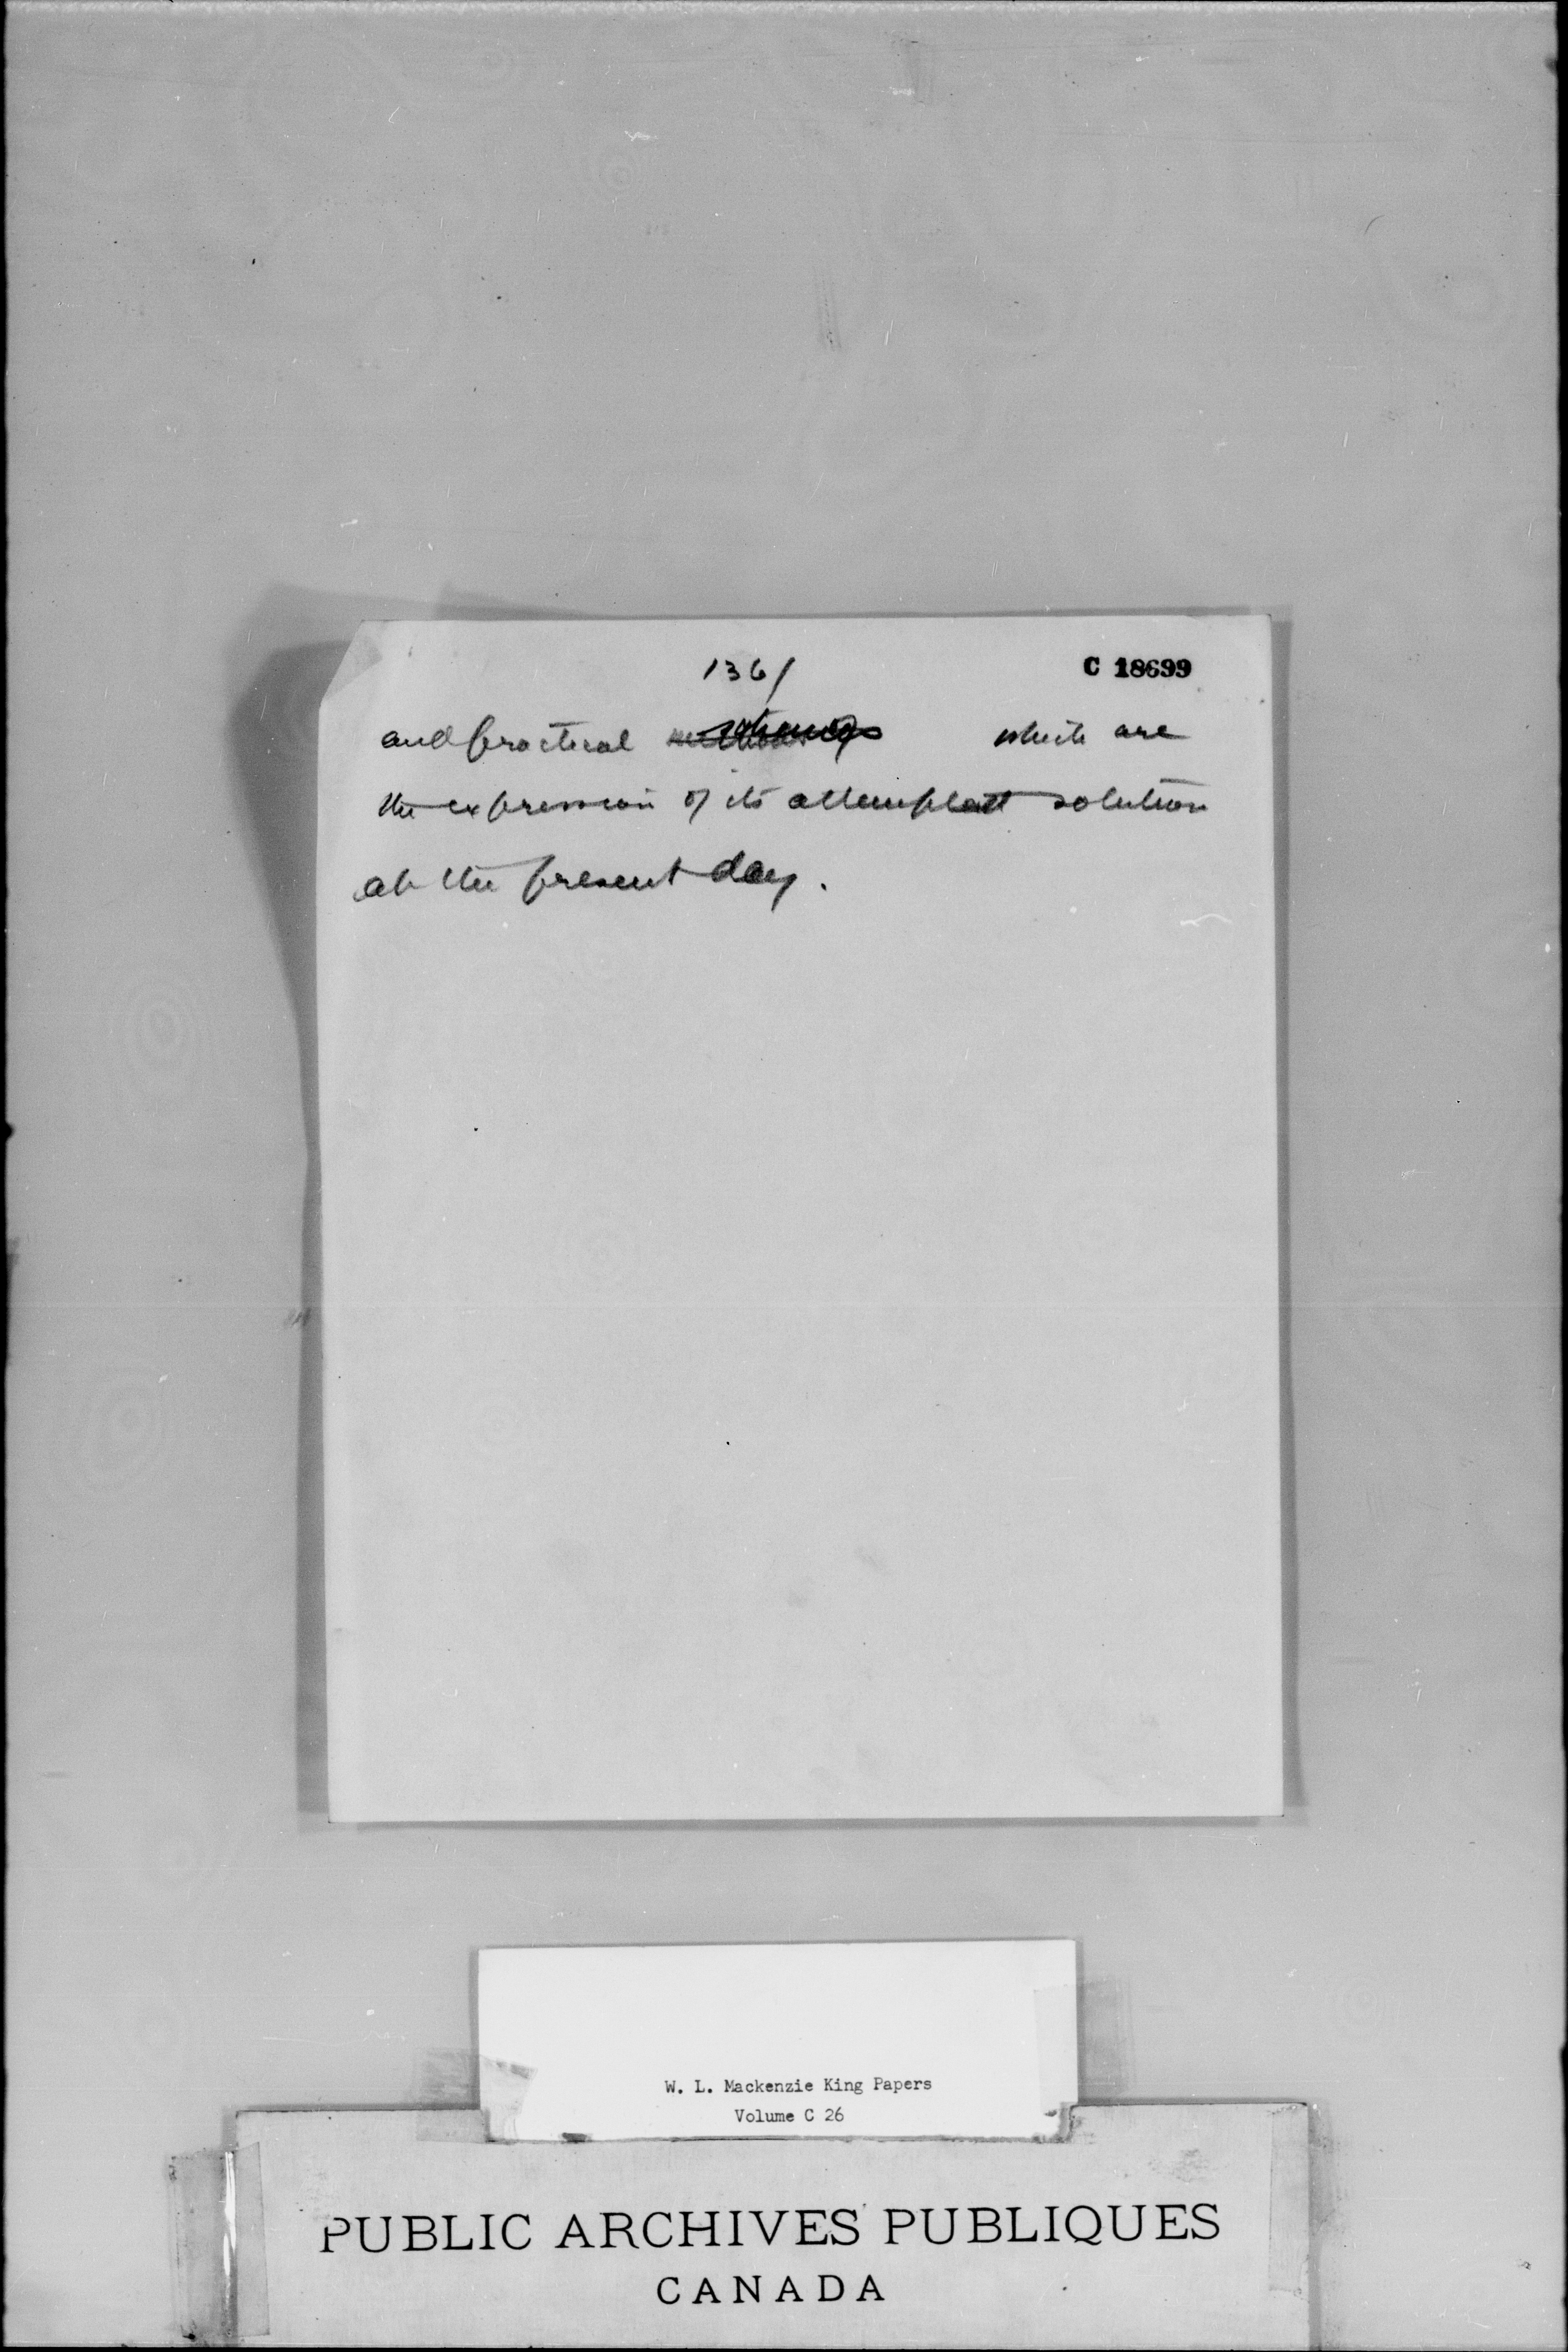 136/
C 18699
and practical schemes which are
the expression of its attempted solution
at the present day.
W. L. Mackenzie King Papers
Volume C 26
PUBLIC ARCHIVES PUBLIQUES
CANADA